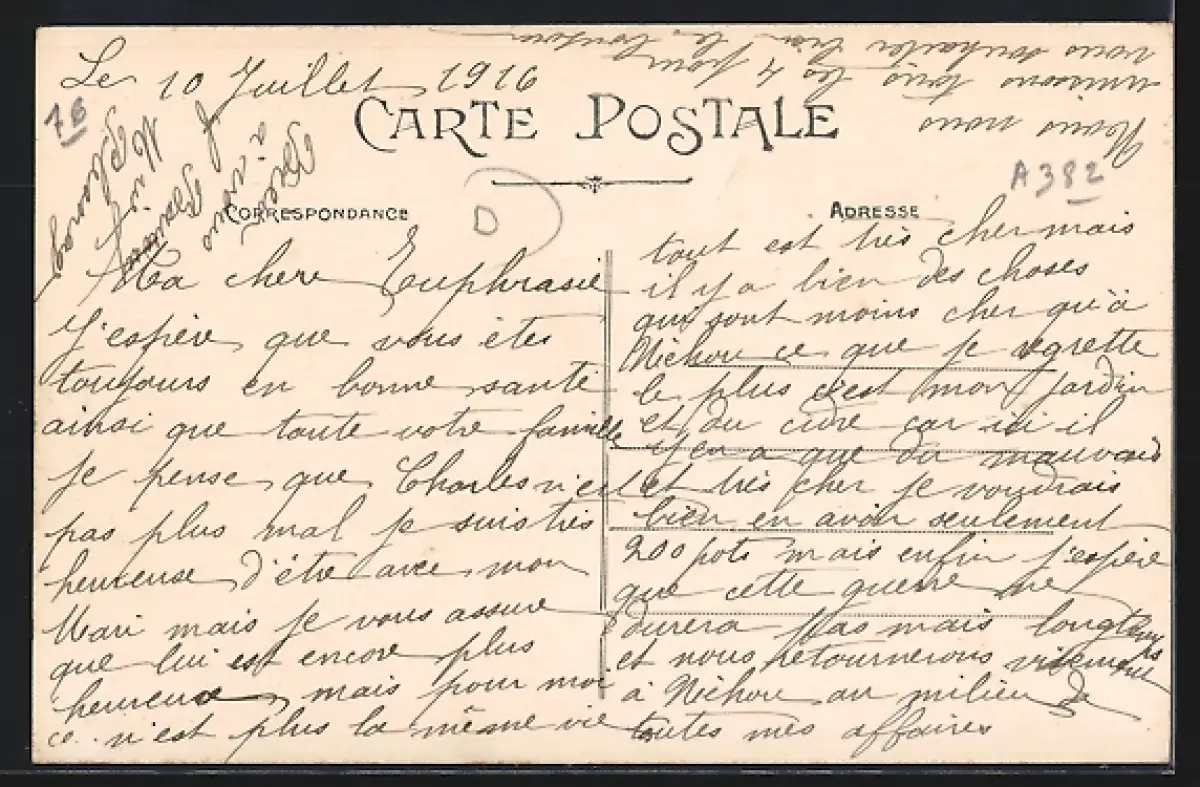 Le 10 Juillet 1916
CARTE POSTALE
76
A382
D
CORRESPONDANCE
ADRESSE
Ma chere Euphrasie
J'espère que vous êtes
toujours en bonne santé
ainsi que toute votre famille
je pense que Charles n'est
pas plus mal je suis très
heureuse d'être avec mon
Mari mais je vous assure
que lui est encore plus
heureux mais pour moi
ce n'est plus la même vie
tout est très cher mais
il y a bien des choses
qui sont moins cher qu'à
Néhou ce que je regrette
le plus c'est mon jardin
et du cidre car ici il
y en a que du mauvais
et très cher je voudrais
bien en avoir seulement
200 pots mais enfin j'espère
que cette guerre ne
durera pas mais longtemps
et nous retournerons vitement
à Néhou au milieu de
toutes mes affaires
Nous nous
unissons tous les 4 pour
vous souhaiter bien le bonjour
à vous